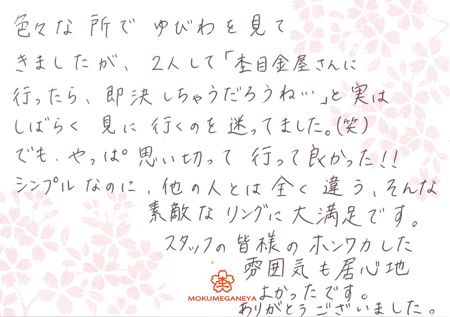 色々な所でゆびわを見て
きましたが、2人して「杢目金屋さんに
行ったら、即決しちゃうだろうね…」と実は
しばらく見に行くのを迷ってました。(笑)
でも、やっぱ思い切って行って良かった!!
シンプルなのに、他の人とは全く違う、そんな
素敵なリングに大満足です。
スタッフの皆様のホンワカした
雰囲気も居心地
よかったです。
ありがとうございました。
MOKUMEGANEYA